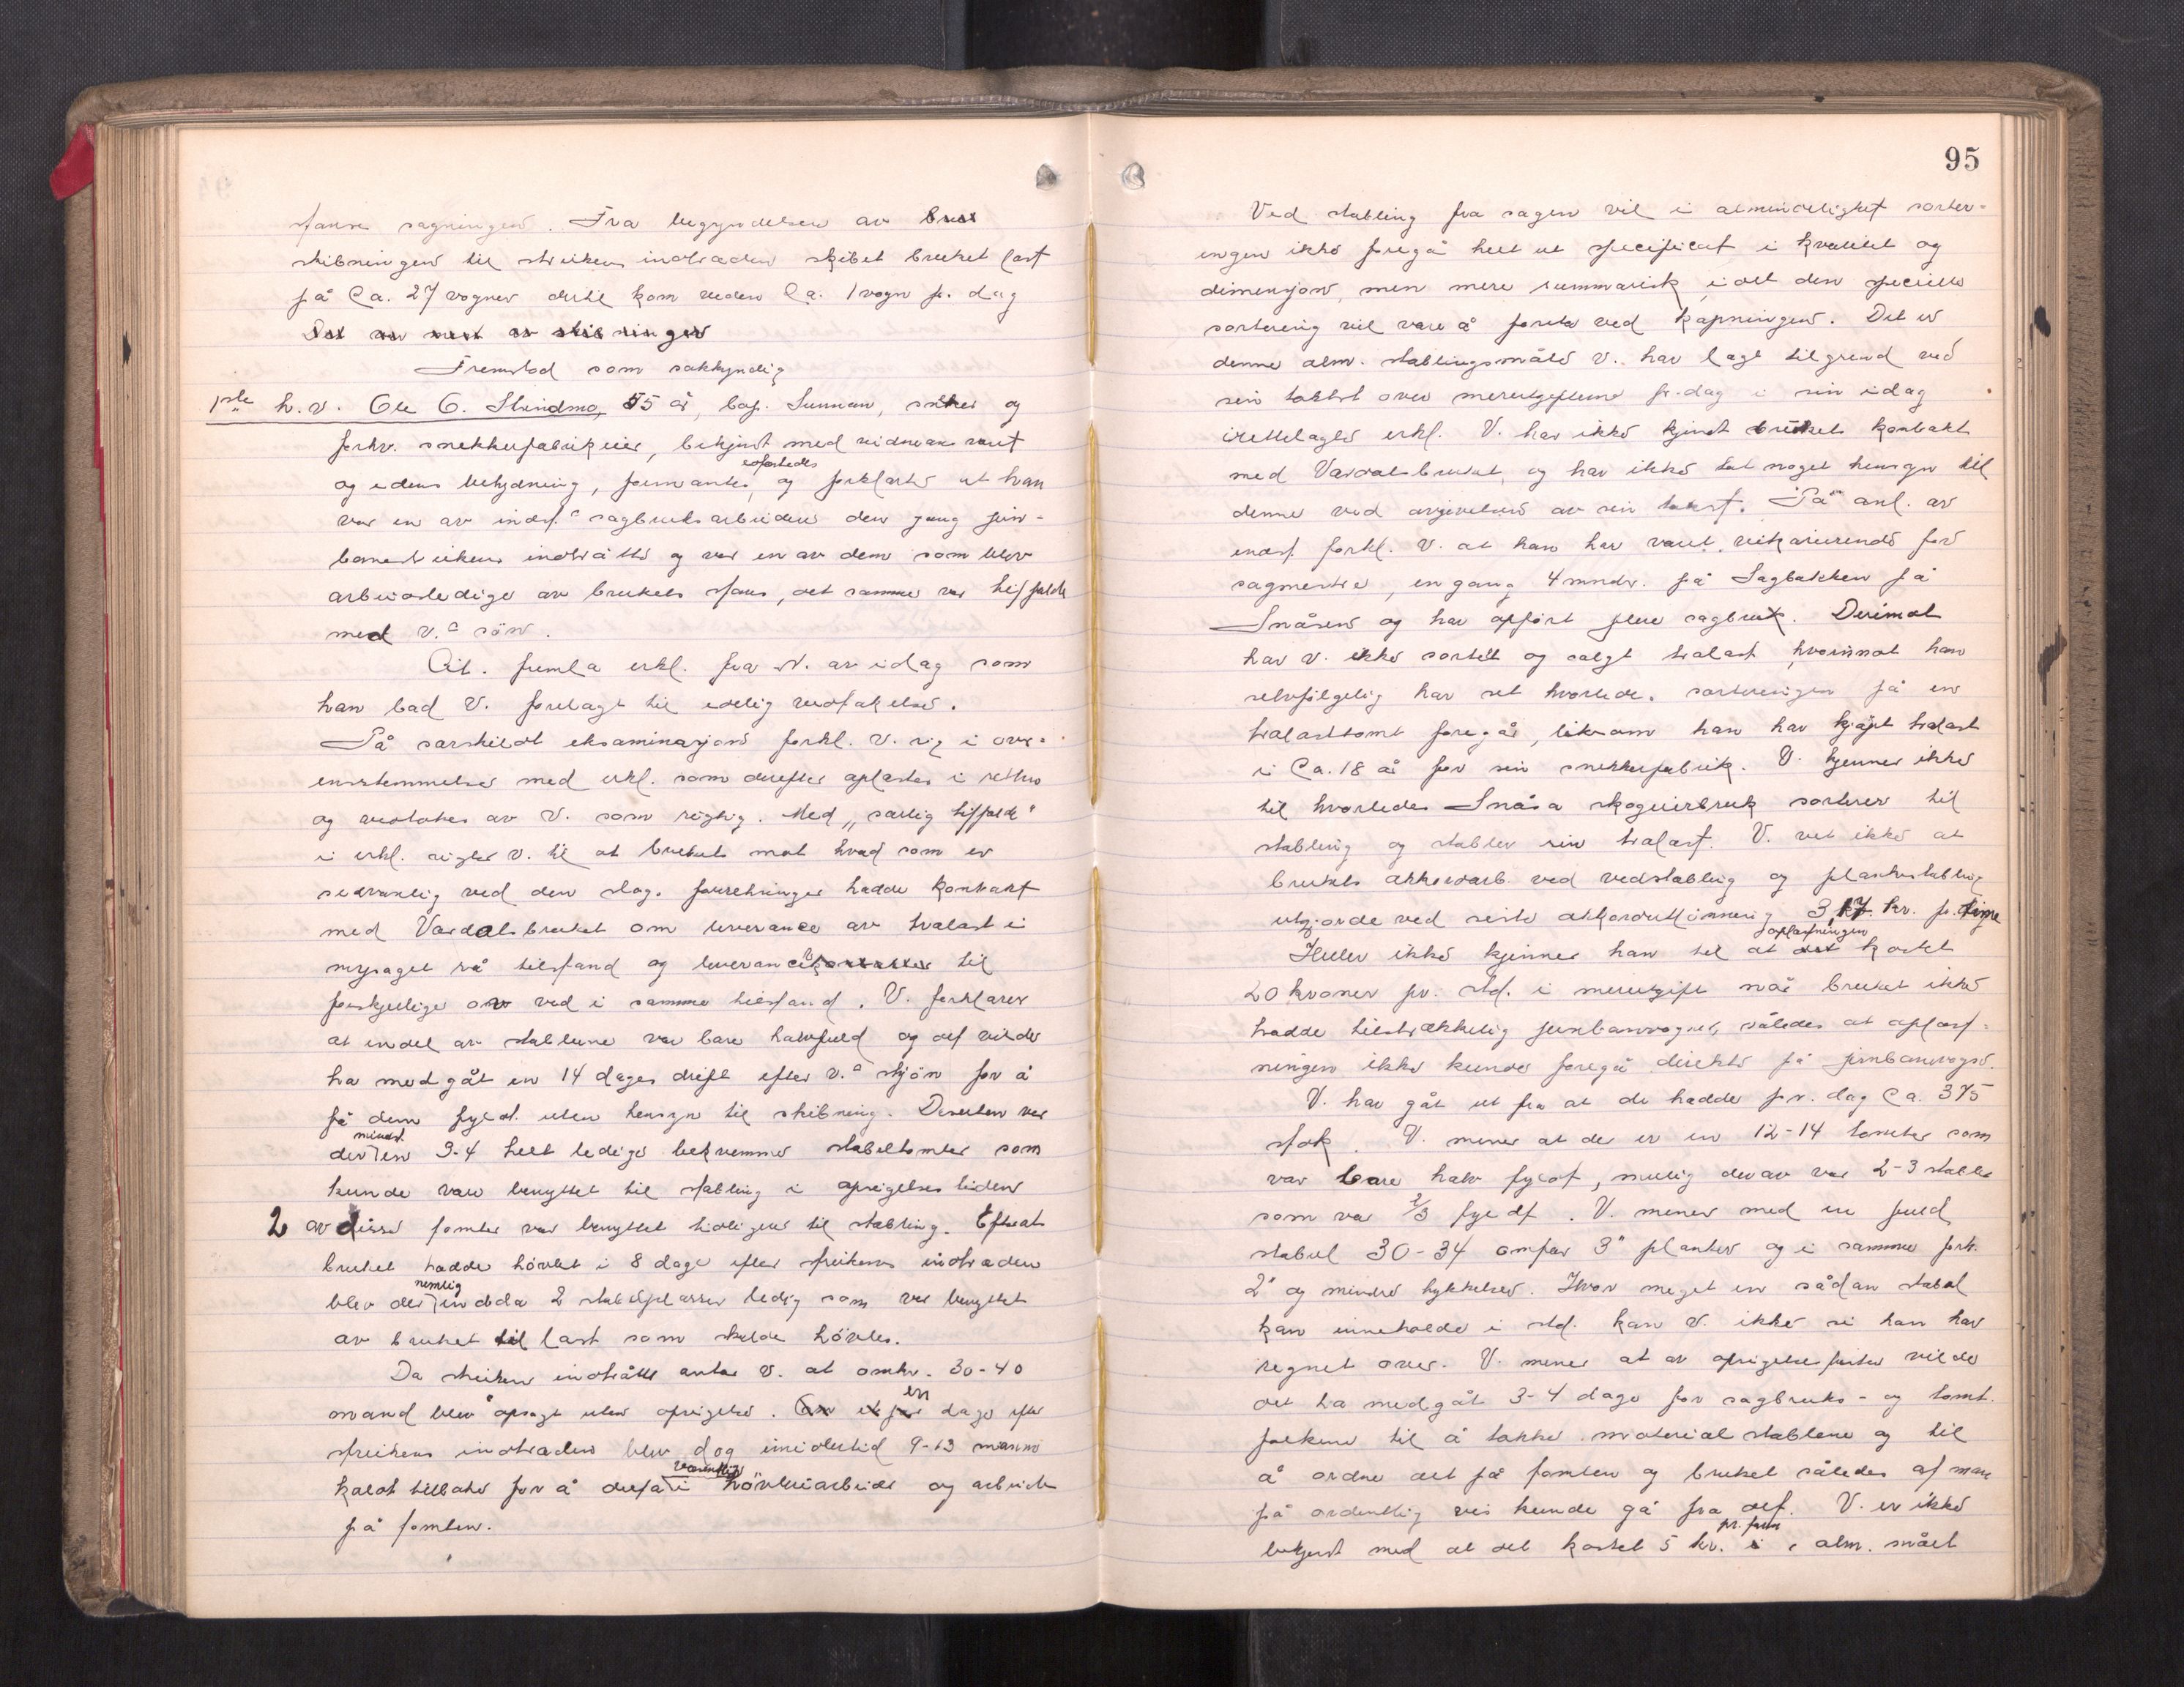 stanse sagningen. Fra begyndelsen av
skibningen til streikens indtræden skibet bruket last
på Ca. 27 vogner dertil kom veden Ca. 1 vogn pr. dag
Fremstod som sakkyndig
1ste h.v. Ole O. Strindmo, 55 år, bop. Sunnan, snekker og
forhv. snekkerfabrikeier, bekjent med vidneansvaret
og edens betydning, formantes, edfæstedes og forklarte at han
var en av indst. sagbruksarbeidere den gang jern-
banestreikens indtråtte og var en av dem som blev
arbeidsledige av brukets stans, det samme var tilfælde
med v.s sön.
Cit. fremla erkl. fra v. av idag som
han bad V. forelagt til edelig vedtakelse.
På særskildt eksaminasjon forkl. V. sig i over-
ensstemmelse med erkl. som derefter oplæstes i retten
og vedtokes av V. som rigtig. Med "særlig tilfælde"
i erkl. sigter V. til at bruket mot hvad som er
sedvanlig ved den slags forretninger hadde kontrakt
med Værdalsbruket om leverance av trælast i
nysaget rå tilstand og leverance til
forskjellige av ved i samme tilstand. V. forklarer
at endel av stablene var bare halvfuld og det vilde
ha medgåt en 14 dages drift efter v.s skjön for å
få dem fyldt uten hensyn til skibning. Desuten var
der mindst en 3-4 helt ledige bekvemme stabeltomter som
kunde vær benyttet til stabling i opsigelsestiden
2 av disse tomter var benyttet tidligere til stabling. Efterat
bruket hadde hövlet i 8 dage efter streikens indtræden
blev der nemlig endda 2 stabelplasser ledig som var benyttet
av bruket til last som skulde hövles.
Da streiken indtråtte antar V. at omkr. 30-40
mand blev opsagt uten opsigelse. en dags efter
streikens indtræden blev dog imidlertid 9-13 mann
kaldt tilbake for å delta i væsentlig hövleriarbeide og arbeide
på tomten.
95
Ved stabling fra sagen vil i almindelighet sorter-
ingen ikke foregå helt ut specificert i kvalitet og
dimensjon, men mere summarisk idet den specielle
sortering vil være å foreta ved kapningen. Det er
denne alm. stablingsmåte V. har lagt tilgrund ved
sin takst over merutgiftene pr. dag i sin idag
irettelagte erkl. V. har ikke kjendt brukets kontrakt
med Værdalsbruket, og har ikke tat noget hensyn til
denne ved avgivelsen av sin takst. På anl. av
indst. forkl. V. at han har været vikarierende for
sagmester, engang 4 mndr. på Sagbakken på
Snåsen og har opfört flere sagbruk. Derimot
har V. ikke sortert og solgt trælast, hvorimot han
selvfölgelig har set hvorledes sorteringen på en
trælasttomt foregår, likesom han har kjöpt trælast
i Ca. 18 år for sin snekkerfabrik. V. kjenner ikke
til hvorledes Snåsa skogeierbruk sorterer til
stabling og stabler sin trælast. V. vet ikke at
brukets akkordarb. ved vedstabling og plankestabling
utgjorde ved siste akkordutlönning 3,17 kr. pr. time
Heller ikke kjenner han til at oplastningen kostet
20 kroner pr. std. i merutgift når bruket ikke
hadde tilstrækkelig jernbanevogner, således at oplast-
ningen ikke kunde foregå direkte på jernbanevogn.
V. har gåt ut fra at de hadde pr. dag Ca. 375
stok. V. mener at der er en 12-14 tomter som
var bare halv fyldt, mulig derav var 2-3 stabler
som var 2/3 fyldt. V. mener med en fuld
stabel 30-34 omfar 3" planker og i samme forh.
2" og mindre tykkelser. Hvor meget en sådan stabel
kan inneholde i std. kan V. ikke si han har
regnet over. V. mener at av opsigelsesfristen vilde
det ha medgåt 3-4 dage for sagbruks- og tomt-
folkene til å takke materialstablene og til
å ordne det på tomten og bruket således at man
på ordentlig vis kunde gå fra det. V. er ikke
bekjent med at det kostet 5 kr. pr. favn i alm. målt